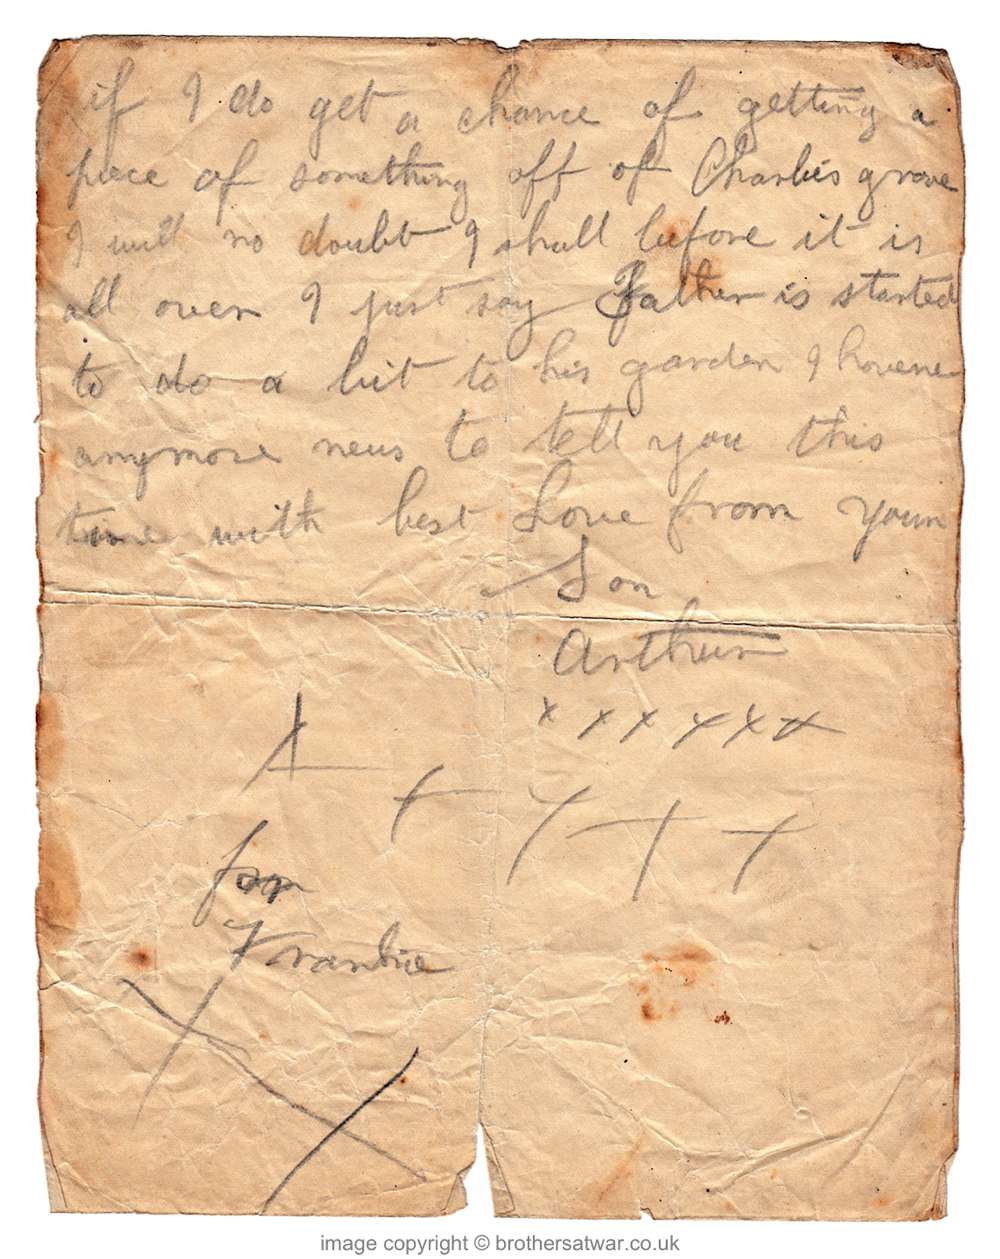 if I do get a chance of getting a
piece of something off of Charlies grave
I will no doubt I shall before it is
all over I just say Father is started
to do a bit to his garden I havene
anymore news to tell you this
time with best Love from your
Son
Arthur
x x x x x x
x
x x x x
for
Frankie
x
x
image copyright © brothersatwar.co.uk